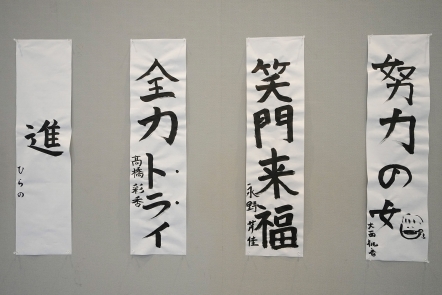 努力の女
大西
笑門来福
永野
全力トライ
高橋彩香
進
ひらの